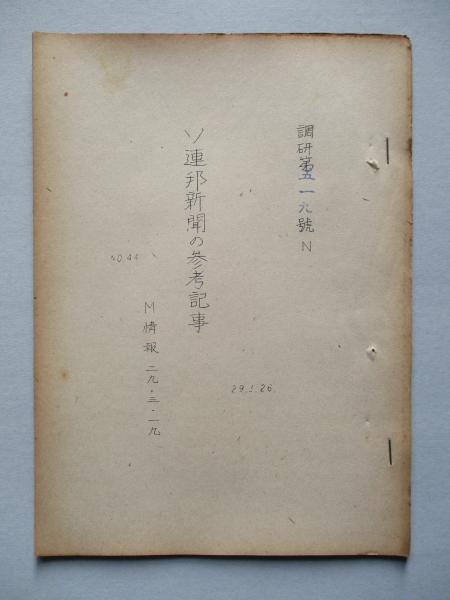 調研第五一九號 N
29.1.26
ソ連邦新聞の参考記事
M情報 二九・三・一九
NO.44